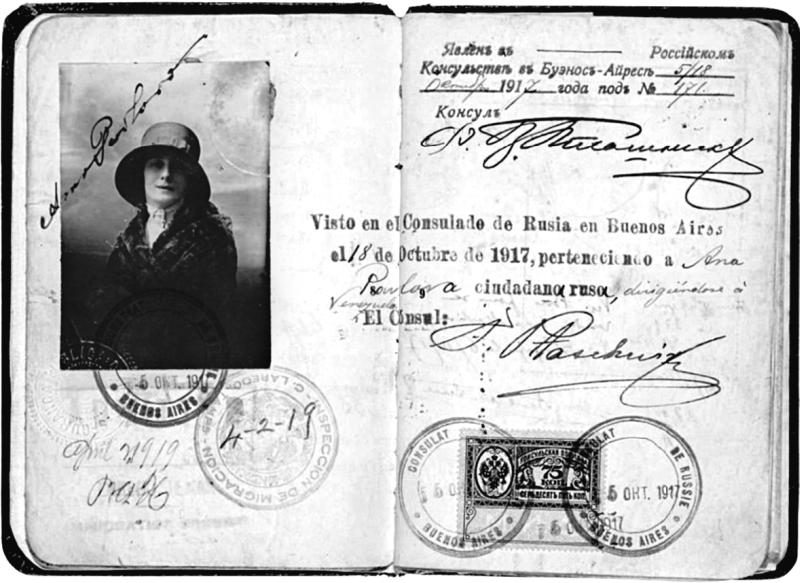 Anna Pavlova
- 5 OKT. 1917
BUENOS AIRES
INSPECCION DE MIGRACION - C. LAREDO
4-2-19
April 2 1919
Явленъ въ Россійскомъ
Консульствѣ въ Буэносъ-Айресѣ 5/18
Октября 1917 года подъ № 171.
Консулъ
Visto en el Consulado de Rusia en Buenos Aires
el 18 de Octubre de 1917, perteneciendo a Ana
Pavlova ciudadana rusa, dirigiéndose á
Venezuela
El Cónsul:
CONSULAT DE RUSSIE
5 OKT. 1917
BUENOS AIRES
75
КОП.
СЕМЬДЕСЯТЪ ПЯТЬ КОП.
CONSULAT DE RUSSIE
5 OKT. 1917
BUENOS AIRES